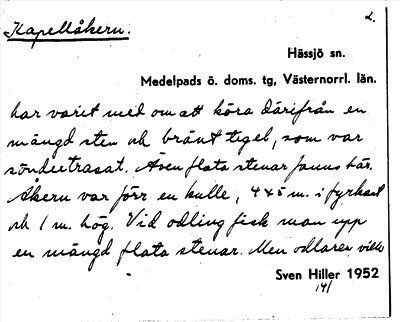 Kapellåkern.
2.
Hässjö sn.
Medelpads ö. doms. tg, Västernorrl. län.
har varit med om att köra därifrån en
mängd sten och bränt tegel, som var
söndertrasat. Även flata stenar fanns här.
Åkern var förr en kulle, 4x5 m. i fyrkant
och 1 m. hög. Vid odling fick man upp
en mängd flata stenar. Men odlaren ville
Sven Hiller 1952
14/1